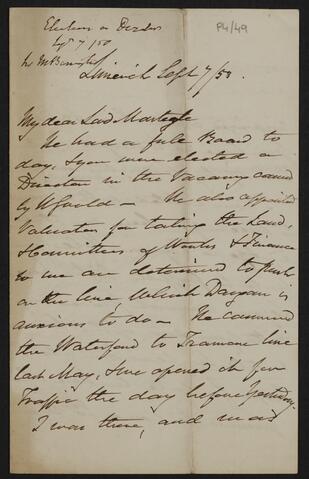 Election as Director
Sept 7/53
P4/49
Limerick Sept 7/53.
My dear Lord Monteagle
We had a full Board to
day, & you were elected a
Director in the Vacancy caused
by W Gould — We also appointed
Valuators for taking the Land,
& Committees of Works & Finance
so we are determined to push
on the line, Which Dargan is
anxious to do — We commenced
the Waterford to Tramore line
last May, & we opened it for
Traffic the day before yesterday.
I was there, and was